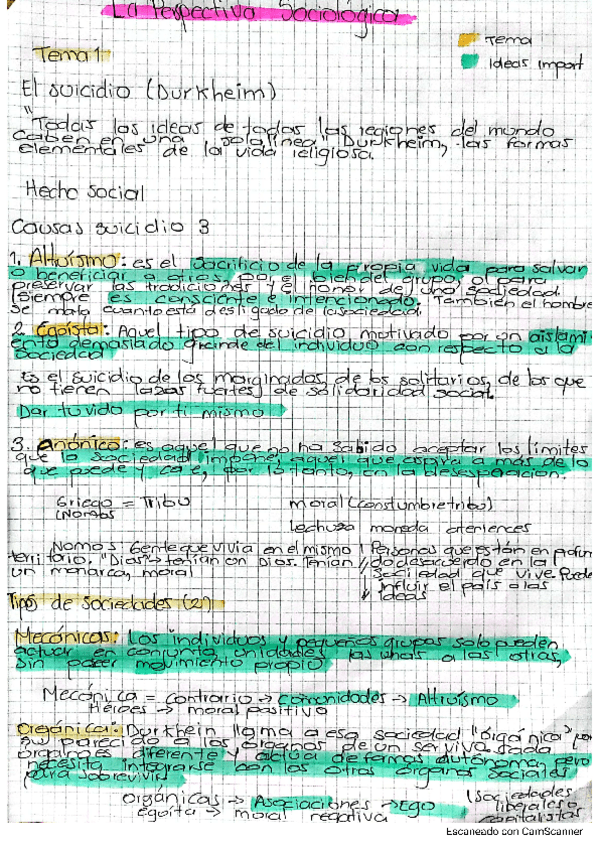 La Perspectiva Sociológica
Tema
Ideas import
Tema 1
El suicidio (Durkheim)
"Todas las ideas de todas las regiones del mundo
caben en una sola linea" Durkheim, las formas
elementales de la vida religiosa.
Hecho social
Causas suicidio 3
1. Altruísmo: es el sacrificio de la propia vida para salvar
o beneficiar a otros, por el bien del grupo, o para
preservar las tradiciones y el honor de una sociedad
(siempre es consciente e intencionado. También el hombre
se mata cuanto está desligado de la sociedad.
2. Egoísta: Aquel tipo de suicidio motivado por un aislami
ento demasiado grande del individuo con respecto a la
sociedad
Es el suicidio de los marginados, de los solitarios, de los que
no tienen lazos fuertes de solidaridad social.
Dar tu vida por ti mismo
3. Anónico: es aquel que no ha sabido aceptar los límites
que la sociedad impone, aquel que aspira a más de lo
que puede y cae, por lo tanto, en la desesperación.
Griego = Tribu
moral (constumbre tribu)
(Nombs
lechuza moneda atenienses
Nomos: Gente que vivia en el mismo
territorio. "Dios" → tenían un Dios. Tenían
un monarca, moral
Personas que están en profun
do desacuerdo en la
sociedad que vive. Puede
influir el país o las
ideas
Tipos de sociedades (2)
Mecánicas: Los individuos y pequeños grupos solo pueden
actuar en conjunto, unidades las unas a las otras,
sin poder movimiento propio.
Mecánica = contrario → comunidades → Altruísmo
Héroes → moral positiva
Orgánica: Durkhein llama a esa sociedad "orgánica" por
su parecido a los órganos de un ser vivo. Cada
órgano es diferente y actua de formas autónoma, pero
necesita integrarse con los otros órganos sociales
para sobrevivir
orgánicas → Asociaciones → Ego
(sociedades
liberales o
capitalistas
egoita → moral negativa
Escaneado con CamScanner